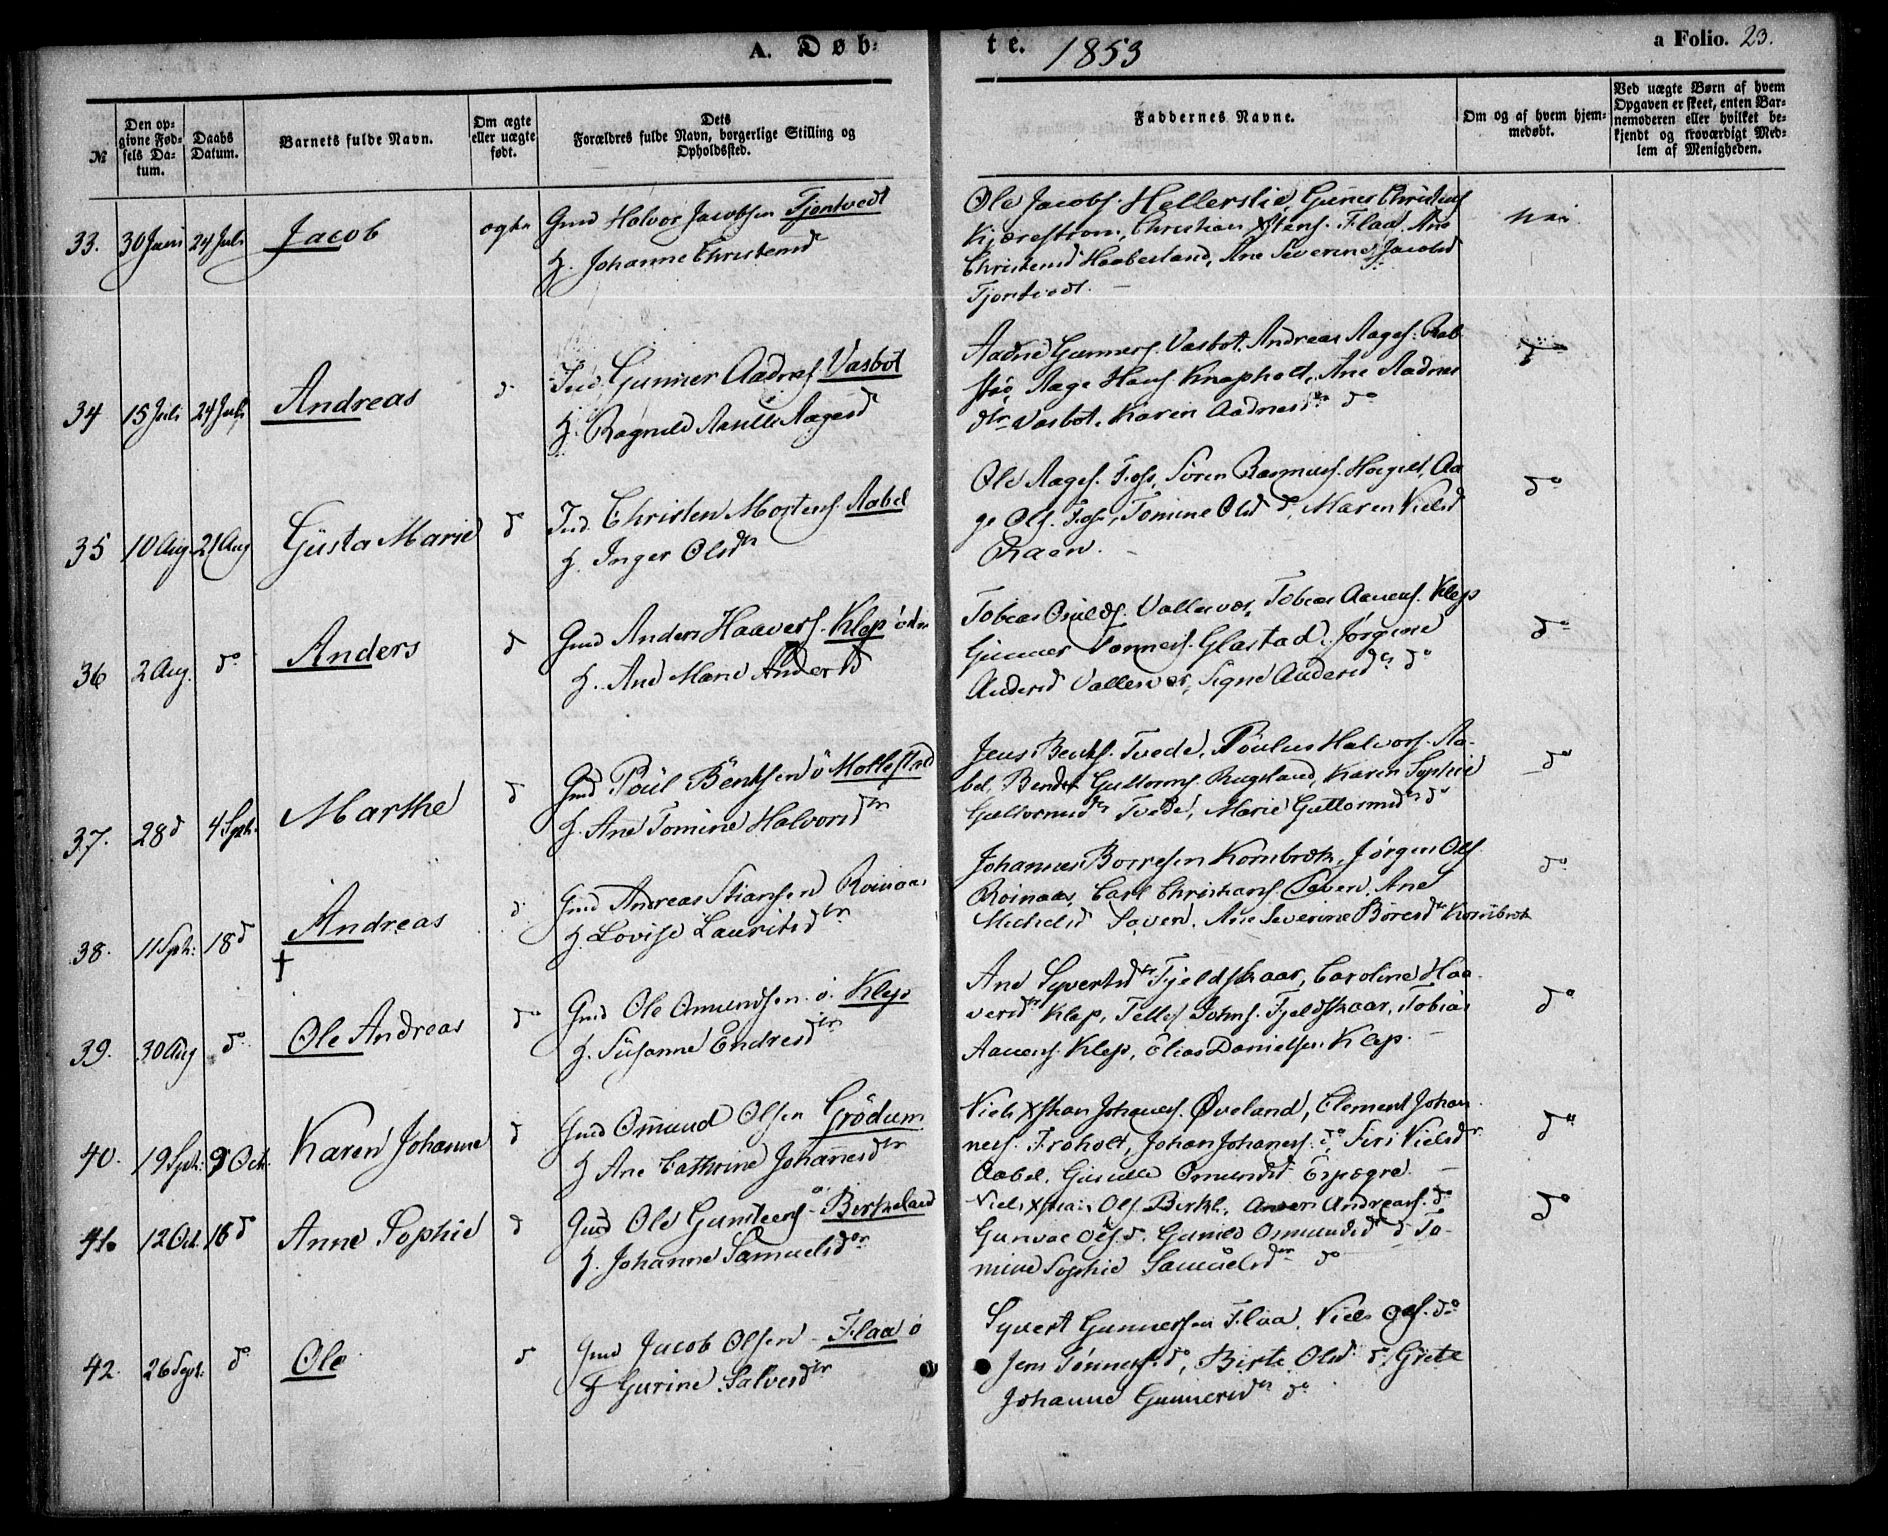 A. Døb-
te. 1853
a Folio. 23.
№
Den opgivne Fødsels Datum.
Daabs Datum.
Barnets fulde Navn.
Om ægte eller uægte født.
Dets Forældres fulde Navn, borgerlige Stilling og Opholdssted.
Faddernes Navne.
Om og af hvem hjemmedøbt.
Ved uægte Børn af hvem Opgaven er skeet, enten Barnemoderen eller hvilket bekjendt og troværdigt Medlem af Menigheden.
33. 30 Juni 24 Juli Jacob ægte Gmd Halvor Jacobsen Tjomtvedt
H. Johanne Christensd
Ole Jacobs. Hellerslie, Guner Christens
Kjærestrom, Christian Xstens. Flaa, Ane
Christensd Haaberland, Ane Severine Jacobsd
Tjomtvedt. nei
34 15 Juli 24 Juli Andreas d Ind. Gunner Aadnes Vasbot
H. Ragnild Aasille Aagesd
Aadne Gunners. Vasbot, Andreas Aages.
Aage Hans. Knapholt, Ane Aadnes
dtr Vasbot, Karen Aadnesd do
35 10 Aug 21 Aug Gusta Marie d Ind. Christen Mortens. Aabel
H. Inger Olsdtr
Ole Aages. Foss, Søren Rasmus. Aa
ge Ols. Foss, Tomine Olsd do, Maren Nielsd
Raen. do
36 2 Aug. do Anders d Gmd Anders Haavers. Klep
H. Ane Marie Andersd
Tobias Vallesvær, Tobias Aanens. Klep
Gunner Tønnes. Glastad, Jørgine
Andersd Vallesvær, Signe Andersd do do
37. 28 d 4 Sept. Marthe d Gmd Poül Bentsen ö Mollestad
H. Ane Tomine Halvorsdtr
Jens Bents. Tvede, Poulus Halvors. Aa-
bel, Bendt Guttorms. Rugsland, Karen Sophie
Guttormsdtr Tvede, Marie Guttormsdtr do do
38. 11 Sept: 18 d Andreas † d Gmd Andreas Stiansen Roinaas
H. Lovise Lauritsdtr
Johannes Borresen Kornbrek, Jørgen Ols
Roinaas, Carl Christians. Søven, Ane
Michelsd Søven, Ane Severine Böresd Kornbrek do
39. 30 Aug do Ole Andreas do Gmd Ole Omundsen ö. Klep
H. Susanne Endresdtr
Ane Syvertsdtr Fjeldskaar, Caroline Haa
versdtr Klep, Tellef Johns. Fjeldskaar, Tobias
Aanens. Klep, Elias Danielsen Klep. do
40. 19 Sept: 9 Oct. Karen Johanne d Gmd Omund Olsen Grödum
H Ane Cathrine Johanesdtr
Niels Xstian Johanes. Øveland, Clement Johan
nes. Froholt, Johan Johanes. do, Siri Nielsdr
Aabel, Omundsd Espegre. do
41. 12 Oct. 16 d Anne Sophie d Gmd Ole Gundens ö Birkeland
H. Johanne Samuelsdtr
Niels Xstian Ols. Birkl., Anders Andreas. do
Gunvor Ols. d. Gunild Osmundsd d To-
mine Sophie Samuelsdtr do do
42. 26 Sept: d Ole d Gmd Jacob Olsen Flaa ö
H Gurine Salvesdtr
Syvert Gunnersen Flaa, Niels Ols. do
Jens Tønnes. do, Birte Olsd do, Grete
Johanne Gunnersdtr do